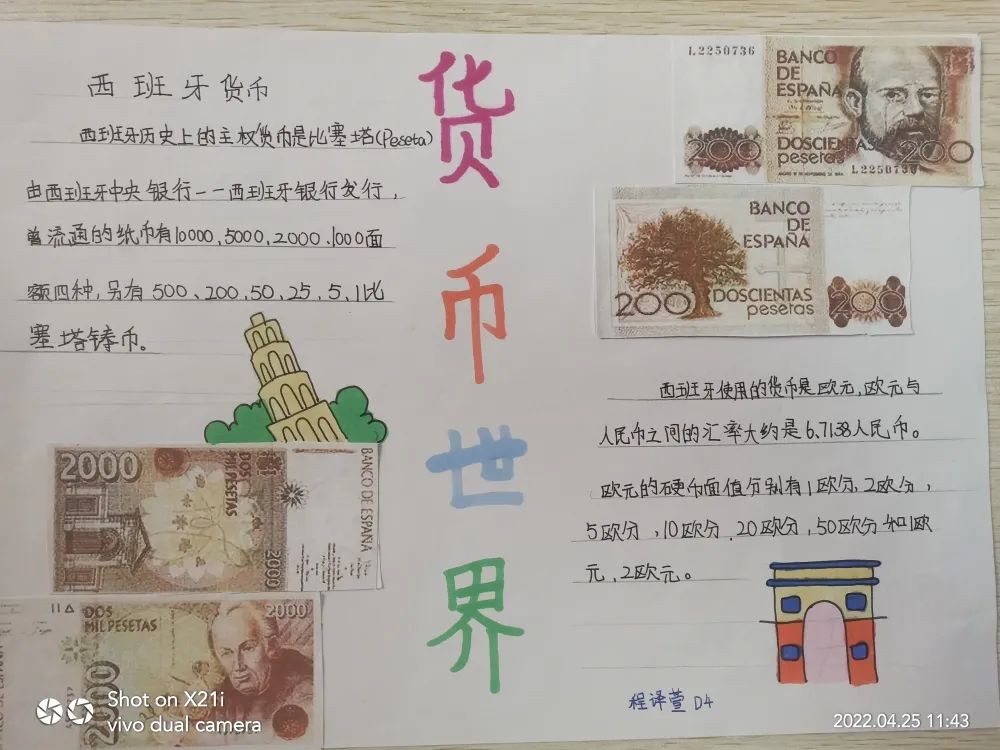 货币世界
西班牙货币
西班牙历史上的主权货币是比塞塔(Peseta)
由西班牙中央银行——西班牙银行发行，
曾流通的纸币有10000、5000、2000、1000面
额四种，另有500、200、50、25、5、1比
塞塔铸币。
2000
DOS
MIL PESETAS
BANCO DE ESPAÑA
2000
DOS
MIL PESETAS
2000
2000
L2250736
BANCO
DE
ESPAÑA
DOSCIENTAS
pesetas
200
200
L2250736
BANCO
DE
ESPAÑA
200
DOSCIENTAS
pesetas
200
西班牙使用的货币是欧元，欧元与
人民币之间的汇率大约是6.7138人民币。
欧元的硬币面值分别有1欧分，2欧分，
5欧分，10欧分，20欧分，50欧分和1欧
元，2欧元。
程译萱 D4
Shot on X21i
vivo dual camera
2022.04.25 11:43